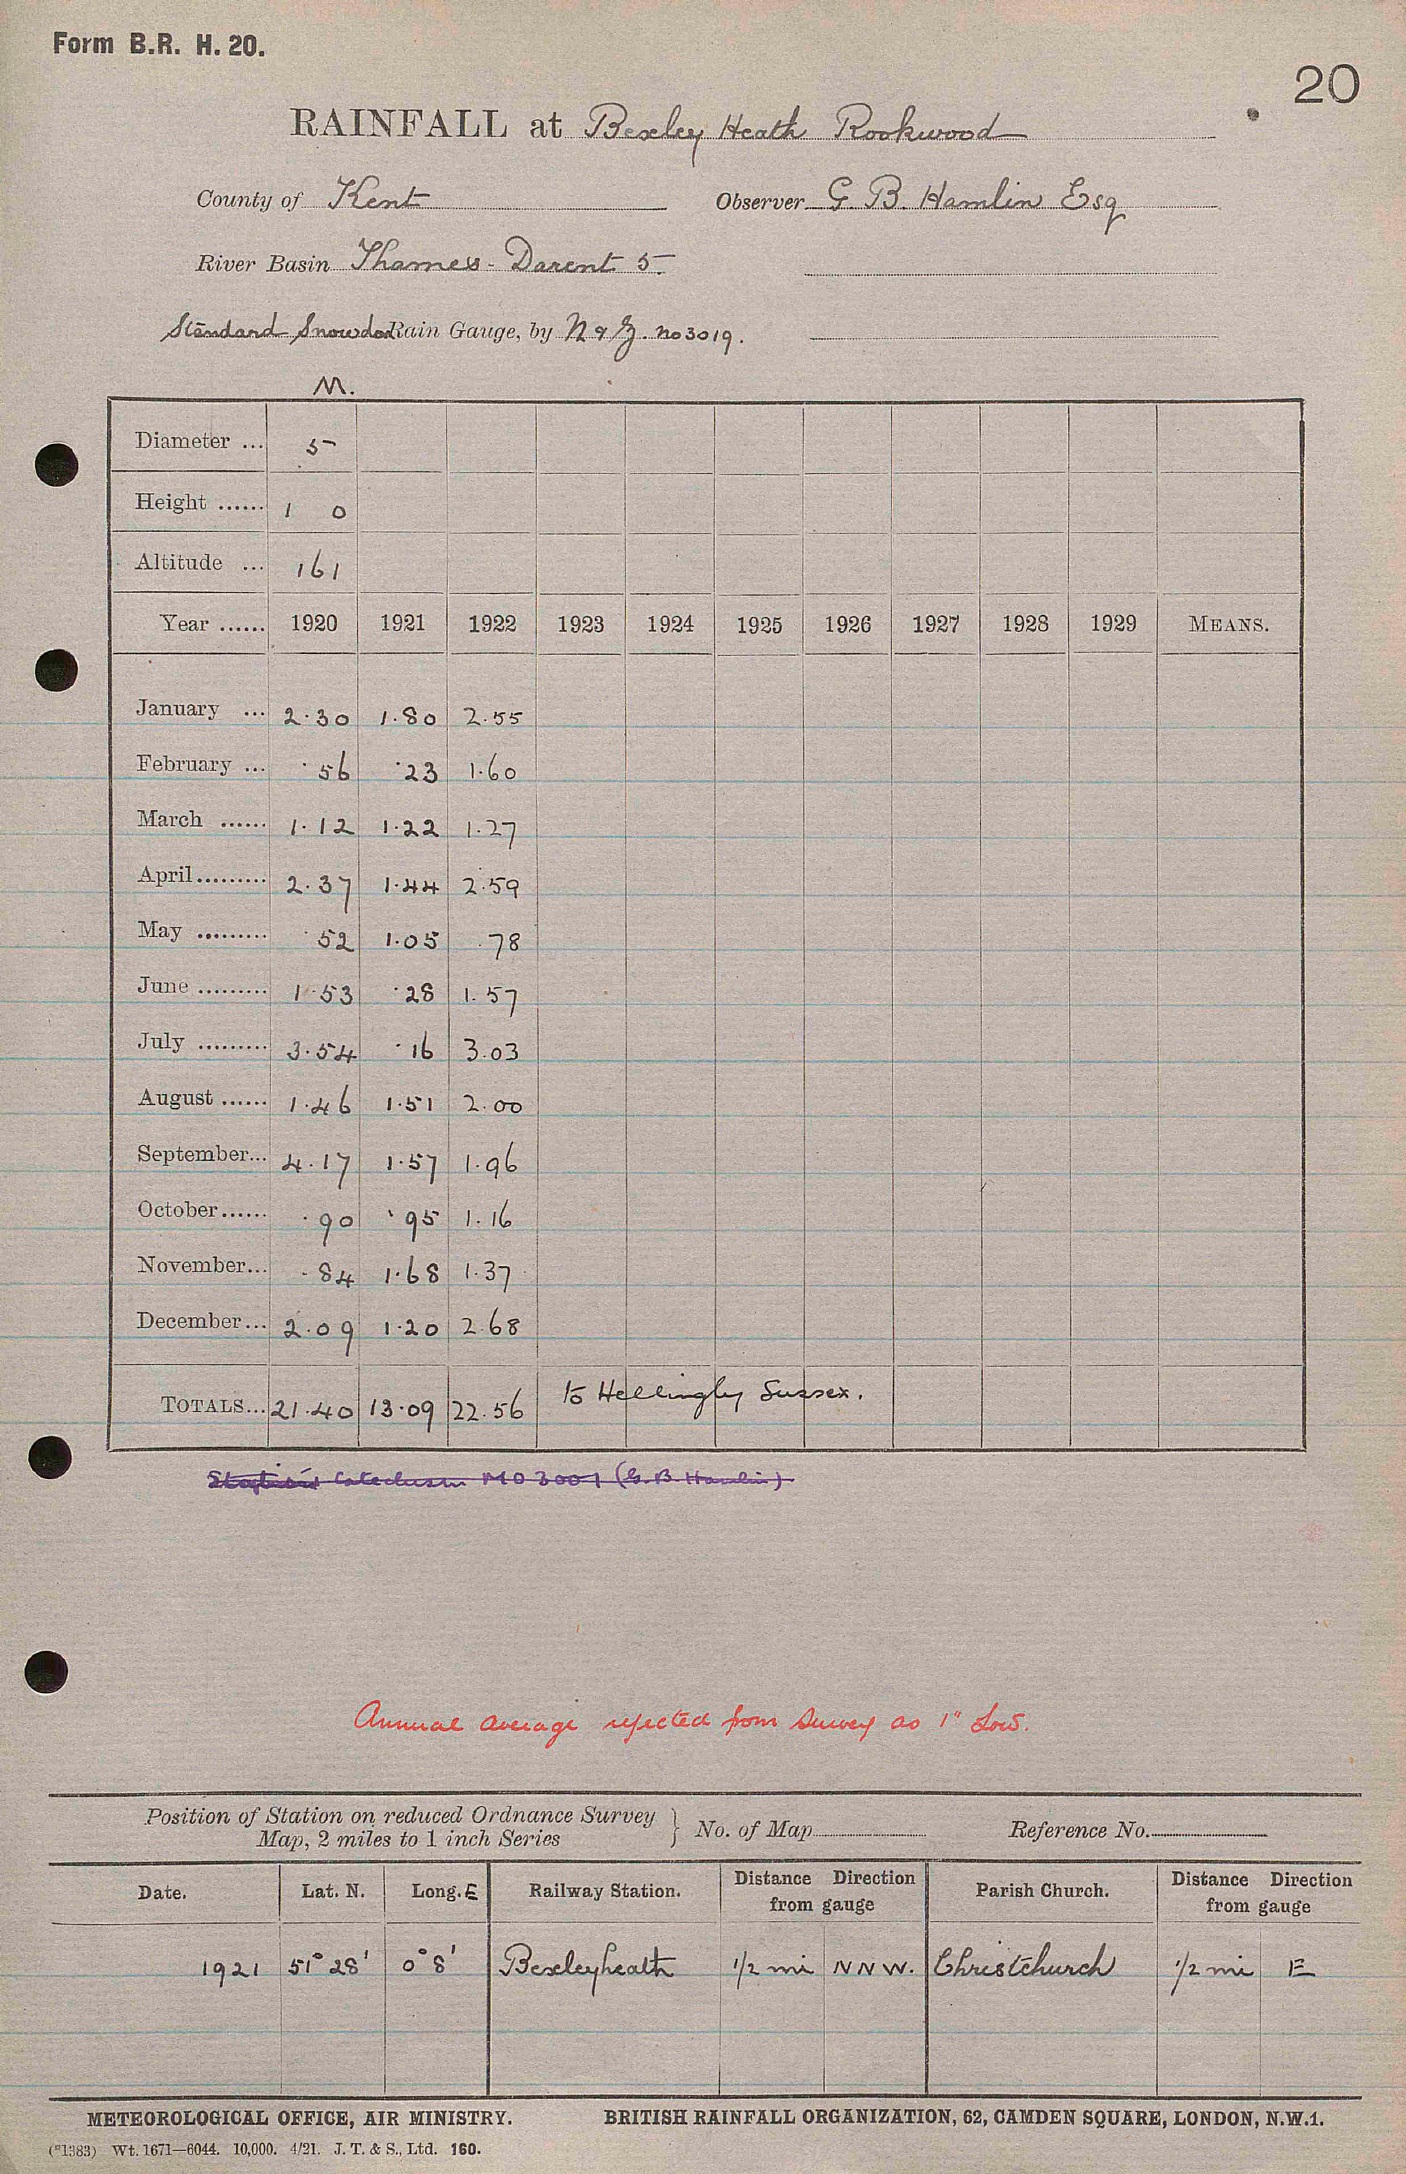 Form B.R. H. 20.
20
RAINFALL at Bexley Heath Rookwood
County of Kent Observer G. B. Hamlin Esq
River Basin Thames - Darent 5
Standard Snowdon Rain Gauge, by N & Z. no 3019.
M.
Diameter ... 5
Height ...... 1 0
Altitude ... 161
Year ...... 1920 1921 1922 1923 1924 1925 1926 1927 1928 1929 MEANS.
January ... 2.30 1.80 2.55
February ... .56 .23 1.60
March ...... 1.12 1.22 1.27
April ......... 2.37 1.44 2.59
May ......... .52 1.05 .78
June ......... 1.53 .28 1.57
July ......... 3.54 .16 3.03
August ...... 1.46 1.51 2.00
September... 4.17 1.57 1.96
October...... .90 .95 1.16
November... .84 1.68 1.37
December... 2.09 1.20 2.68
TOTALS... 21.40 13.09 22.56 to Hellingly Sussex.
Catechism MO 3001 (G. B. Hamlin)
Annual average rejected from survey as 1" low.
Position of Station on reduced Ordnance Survey
Map, 2 miles to 1 inch Series } No. of Map Reference No.
Date. Lat. N. Long. E Railway Station. Distance Direction from gauge Parish Church. Distance Direction from gauge
1921 51° 28' 0° 8' Bexleyheath 1/2 mi NNW. Christchurch 1/2 mi E
METEOROLOGICAL OFFICE, AIR MINISTRY. BRITISH RAINFALL ORGANIZATION, 62, CAMDEN SQUARE, LONDON, N.W.1.
(*1383) Wt. 1671—6044. 10,000. 4/21. J. T. & S., Ltd. 160.